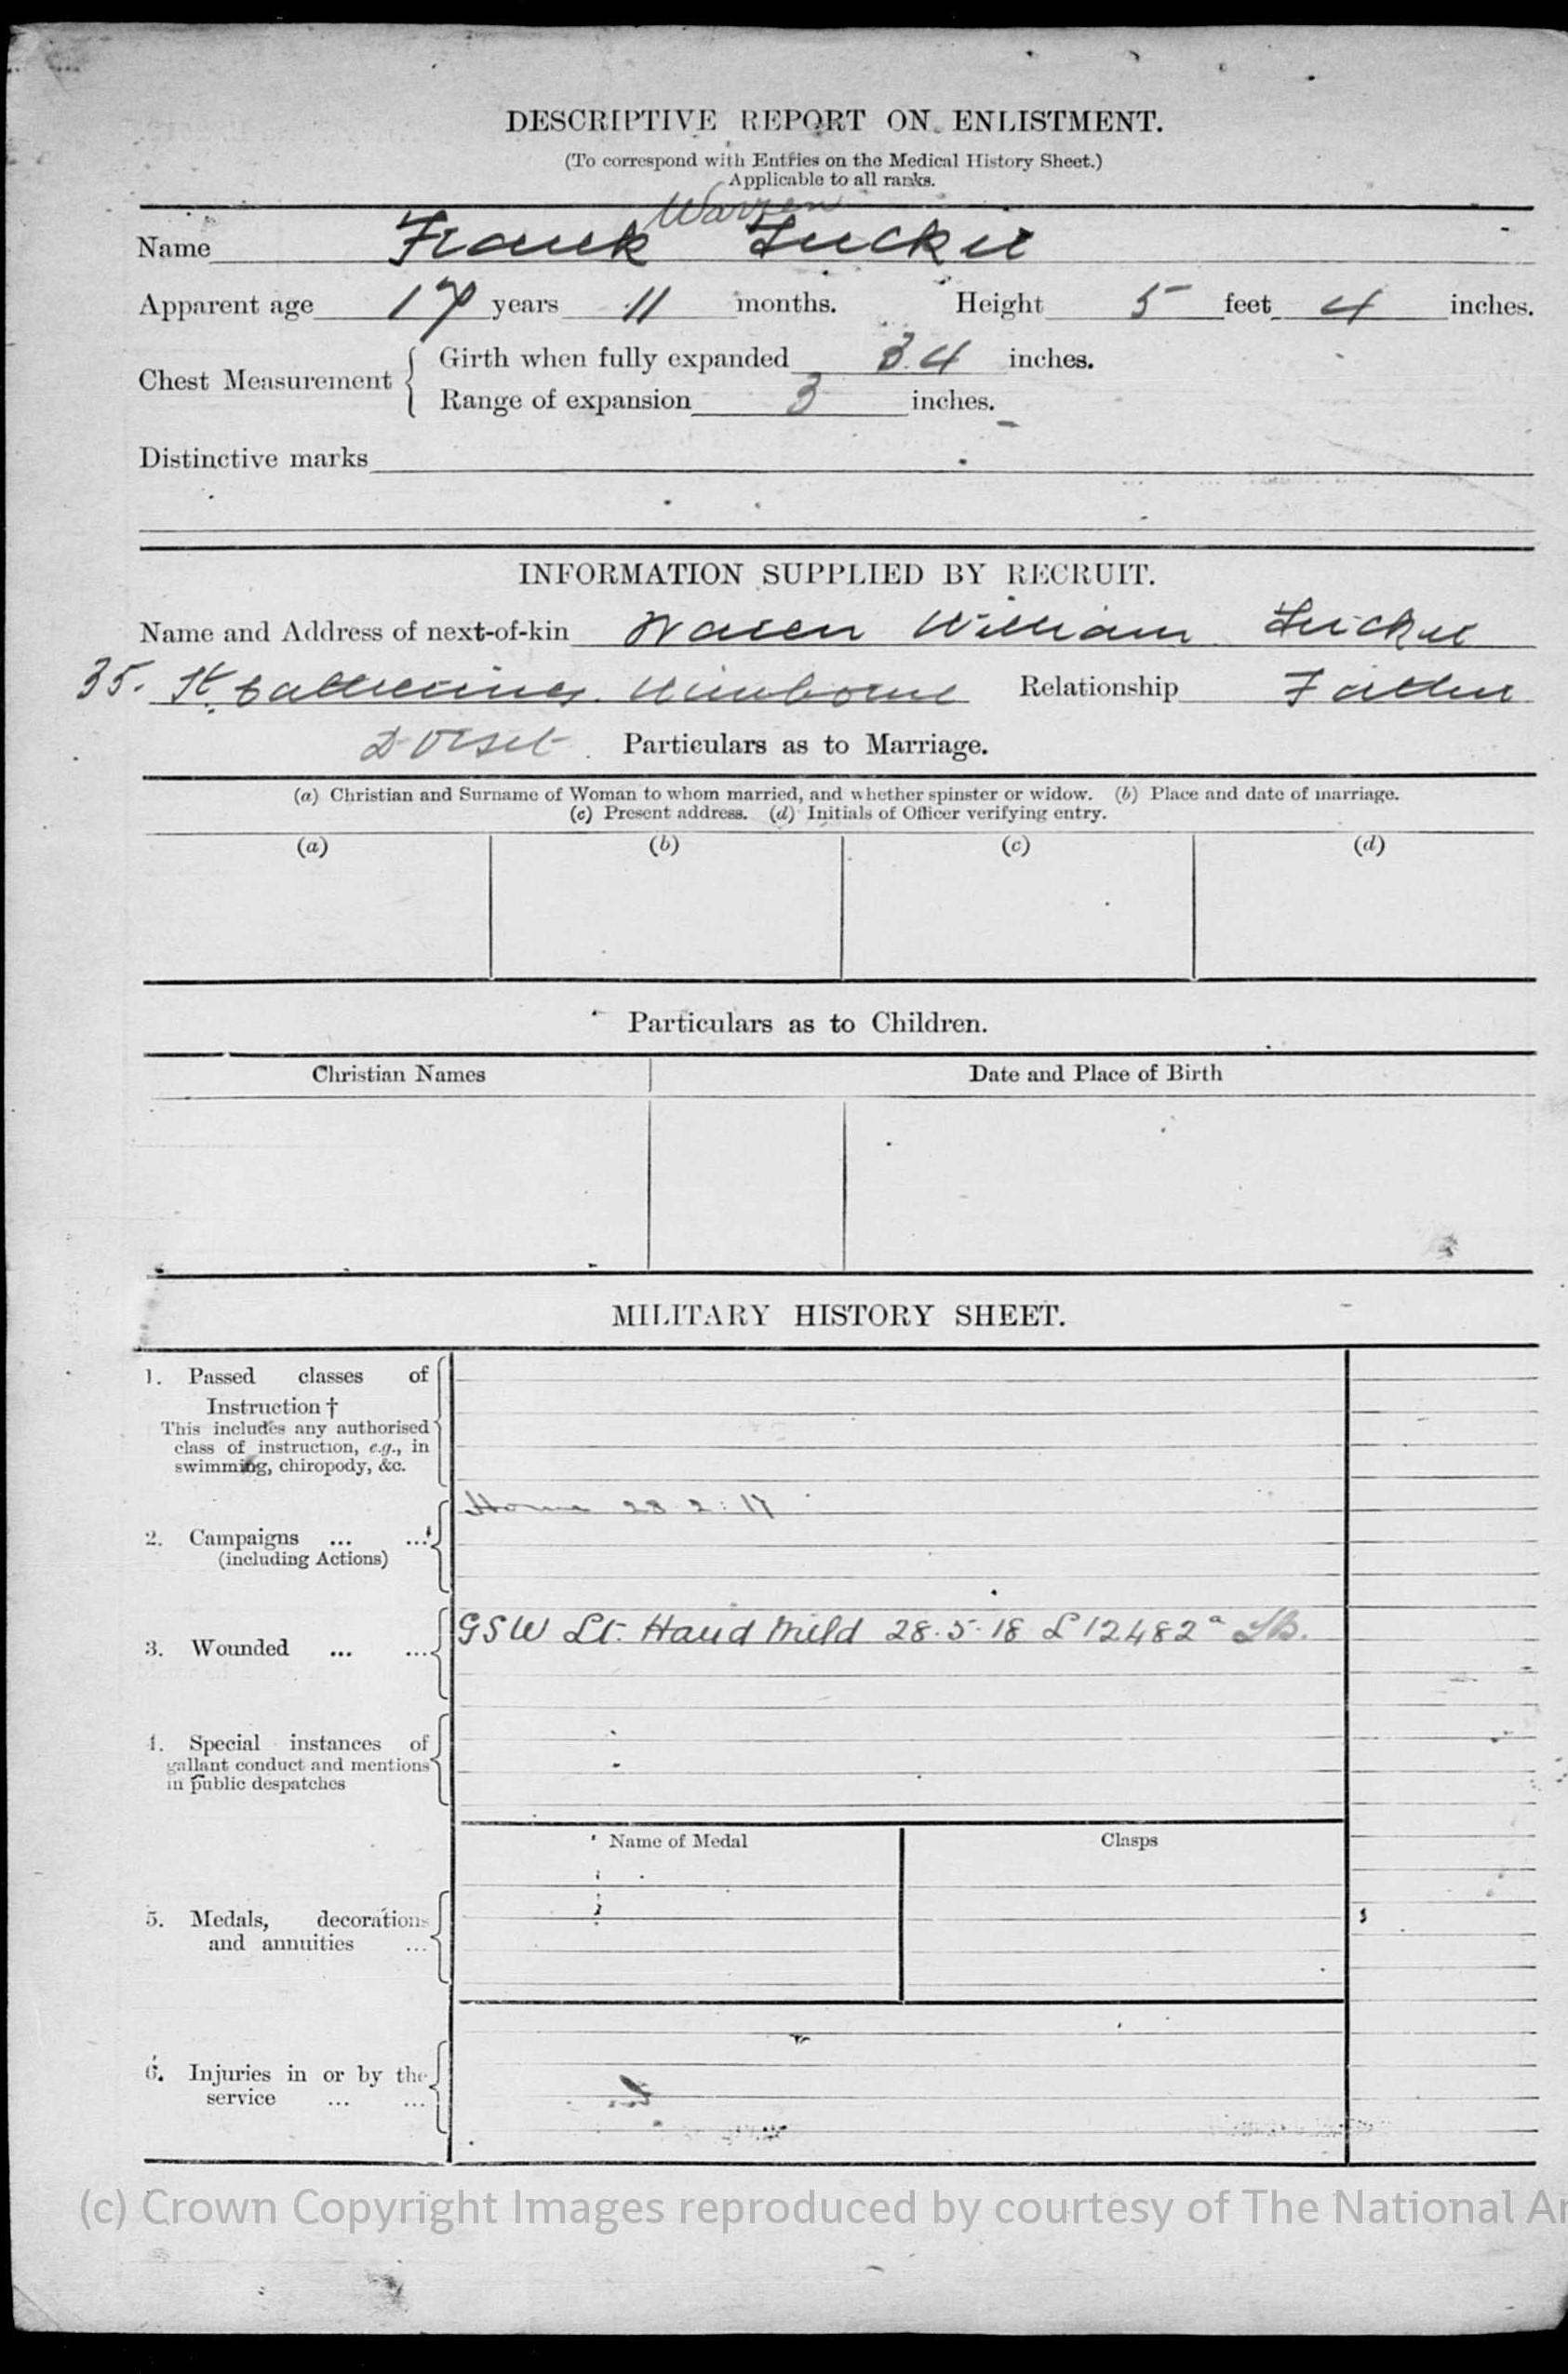 DESCRIPTIVE REPORT ON ENLISTMENT.
(To correspond with Entries on the Medical History Sheet.)
Applicable to all ranks.
Warren
Name Frank Tucker
Apparent age 17 years 11 months. Height 5 feet 4 inches.
Chest Measurement { Girth when fully expanded 34 inches.
Range of expansion 3 inches.
Distinctive marks
INFORMATION SUPPLIED BY RECRUIT.
Name and Address of next-of-kin Waren William Tucker
35. St Catherines. Wimborne Relationship Father
Dorset. Particulars as to Marriage.
(a) Christian and Surname of Woman to whom married, and whether spinster or widow. (b) Place and date of marriage.
(c) Present address. (d) Initials of Officer verifying entry.
(a) (b) (c) (d)
Particulars as to Children.
Christian Names Date and Place of Birth
MILITARY HISTORY SHEET.
1. Passed classes of
Instruction †
This includes any authorised
class of instruction, e.g., in
swimming, chiropody, &c.
Home 28 2: 17
2. Campaigns ... ...
(including Actions)
GSW Lt. Hand Mild 28.5.18 L 12482a
3. Wounded ... ...
4. Special instances of
gallant conduct and mentions
in public despatches
Name of Medal Clasps
5. Medals, decorations
and annuities ...
6. Injuries in or by the
service ... ...
(c) Crown Copyright Images reproduced by courtesy of The National Ar